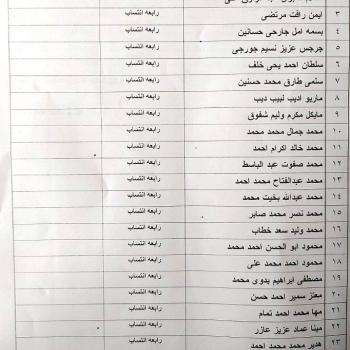 رابعه انتساب
٣ ايمن رافت مرتضى رابعه انتساب
٤ بسمه امل جارحى حسانين رابعه انتساب
٥ جرجس عزيز نسيم جورجى رابعه انتساب
٦ سلطان احمد يحى خلف رابعه انتساب
٧ سلمى طارق محمد حسنين رابعه انتساب
٨ ماريو اديب لبيب ديب رابعه انتساب
٩ مايكل مكرم وليم شفوق رابعه انتساب
١٠ محمد جمال محمد محمد رابعه انتساب
١١ محمد خالد اكرام احمد رابعه انتساب
١٢ محمد صفوت عبد الباسط رابعه انتساب
١٣ محمد عبدالفتاح محمد احمد رابعه انتساب
١٤ محمد عبدالله بخيت محمد رابعه انتساب
١٥ محمد نصر محمد صابر رابعه انتساب
١٦ محمد وليد سعد خطاب رابعه انتساب
١٧ محمود ابو الحسن احمد محمد رابعه انتساب
١٨ محمود احمد محمد على رابعه انتساب
١٩ مصطفى ابراهيم بدوى محمد رابعه انتساب
٢٠ معتز سمير احمد حسن رابعه انتساب
٢١ مها محمد احمد تمام رابعه انتساب
٢٢ مينا عماد عزيز عازر رابعه انتساب
٢٣ هدير محمد محمد احمد رابعه انتساب